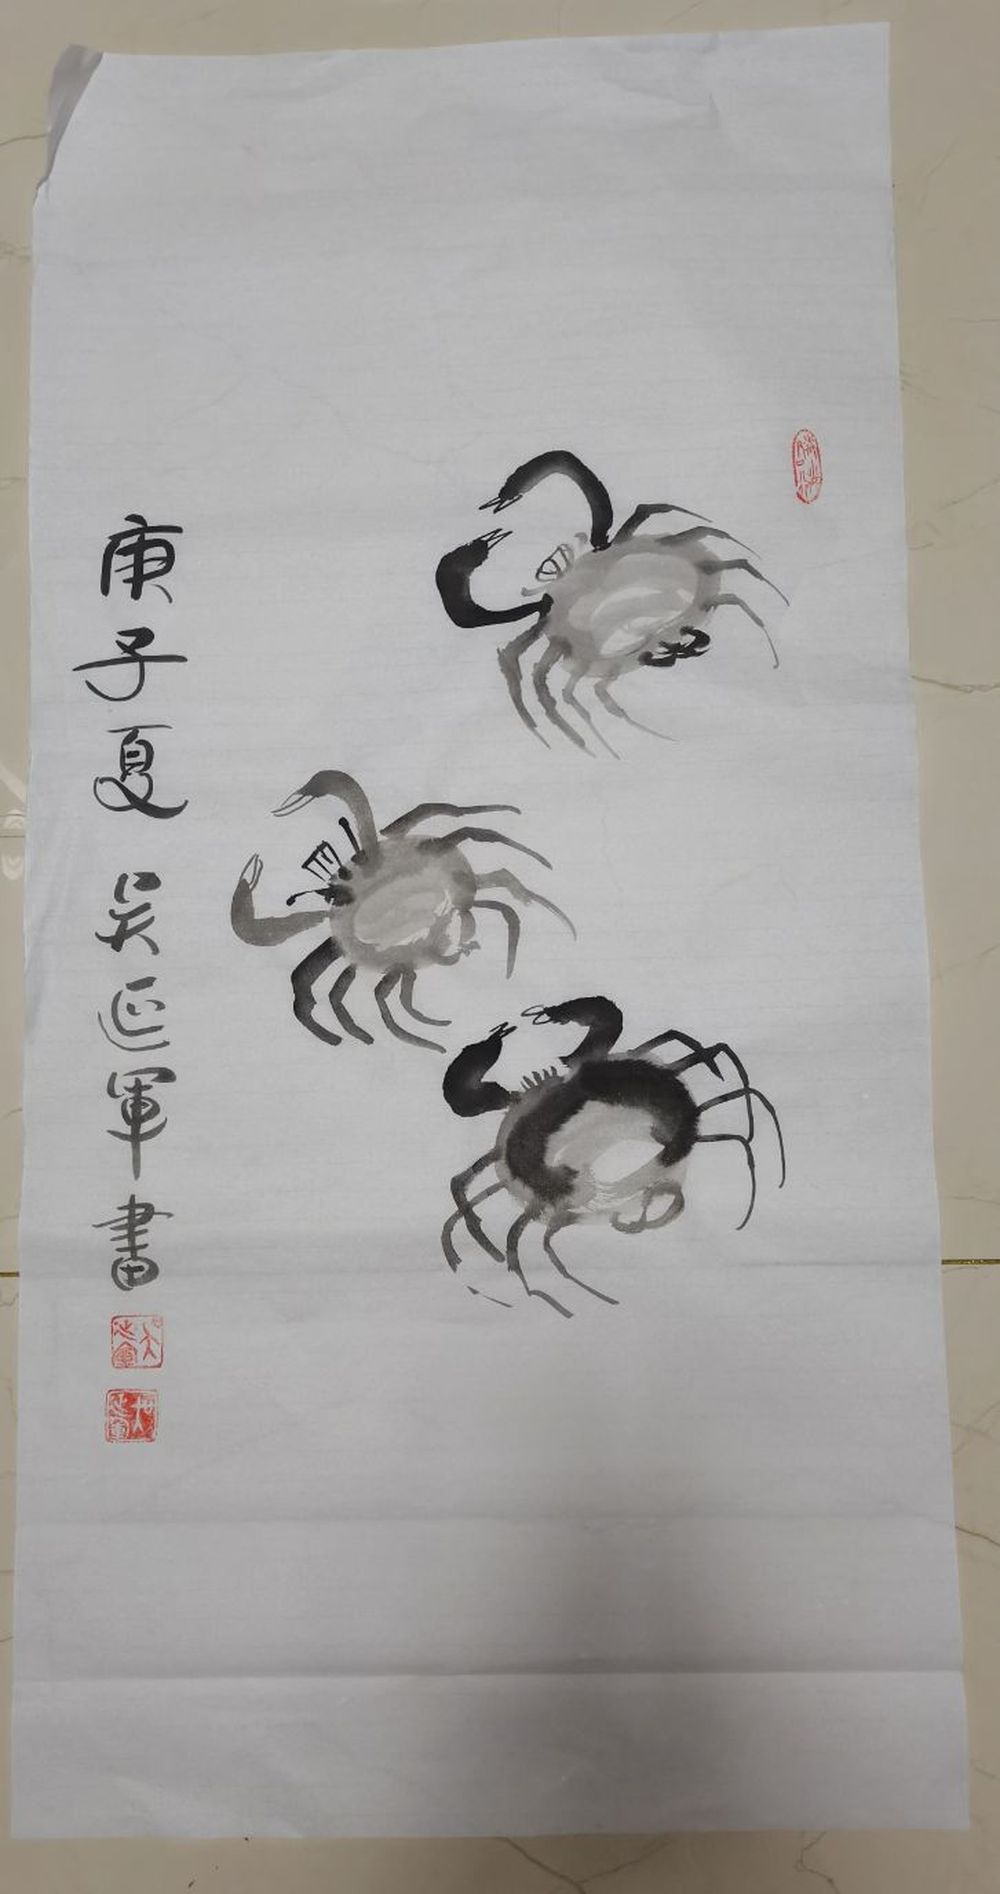 庚子夏 吴延军書